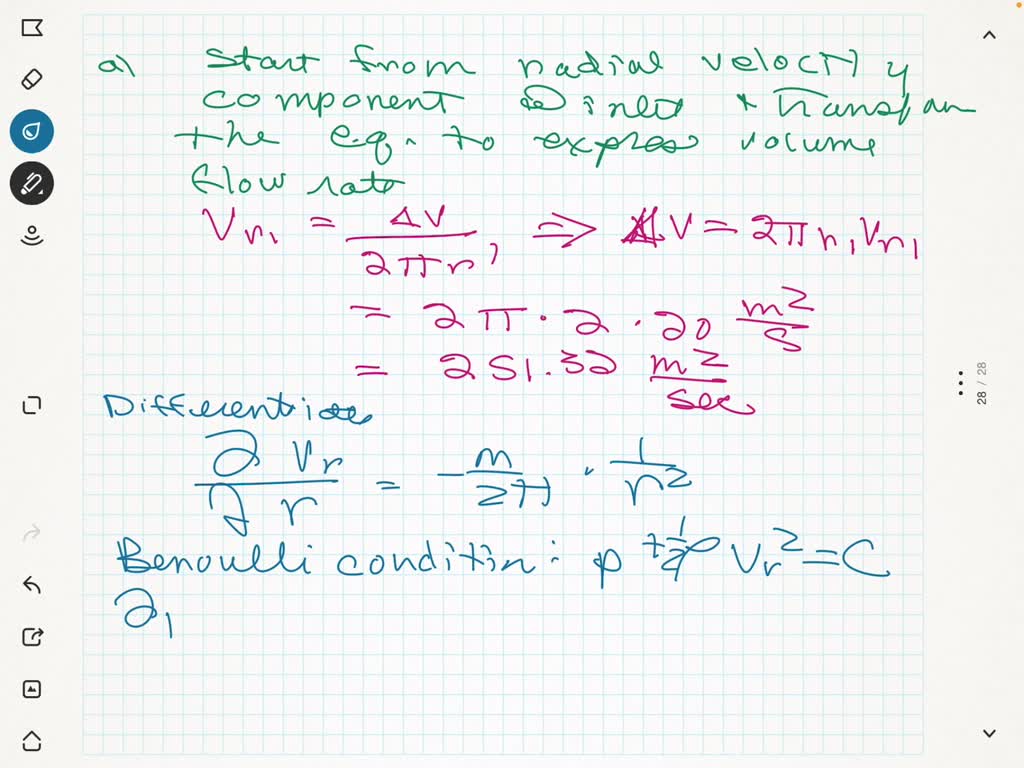 a) Start from radial velocity
component @ inlet & Transform
the eq. to express volume
flow rate
Vr₁ = ΔV / 2πr, ⇒ V = 2πr₁Vr₁
= 2π · 2 · 20 m²/S
= 251.32 m²/sec
Differentiate
∂Vr/∂r = -m/2π · 1/r²
Benoulli condition : p + ½ρ Vr² = C
∂₁
28 / 28